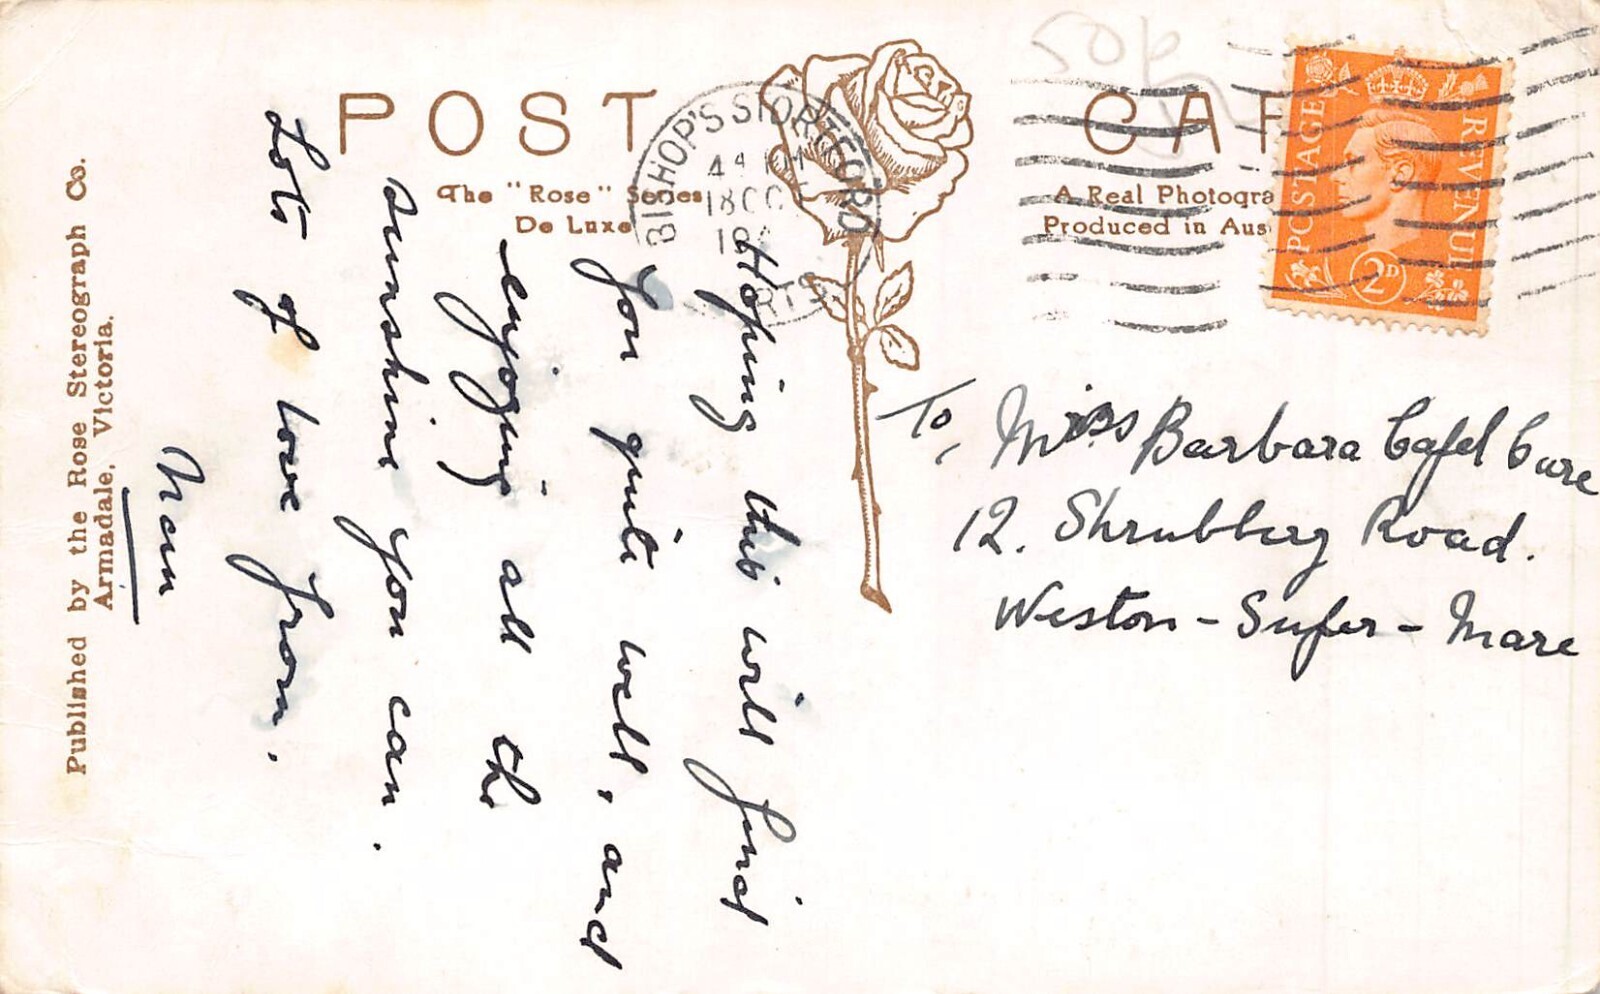 POST CAR
The "Rose" Series
De Luxe
A Real Photogra
Produced in Aus
BISHOP'S STORTFORD
18 OC
19
POSTAGE
REVENUE
2D
50p
Hoping this will find
you quite well, and
enjoying all the
sunshine you can.
Lots of love from.
Nan
To, Miss Barbara
12. Shrubbery Road.
Weston-Super-Mare
Published by the Rose Stereograph Co.
Armadale, Victoria.